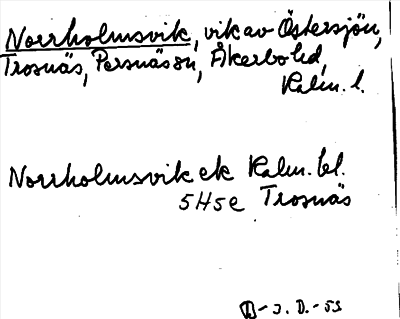 Norrholmsvik, vik av Östersjön,
Trosnäs, Persnäs sn, Åkerbo hd,
Kalm. l.
Norrholmsvik ek Kalm. bl.
5H5e Trosnäs
J. D. - 53